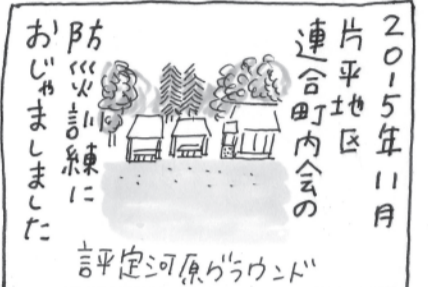 2015年11月
片平地区
連合町内会の
防災訓練に
おじゃましました
評定河原グラウンド